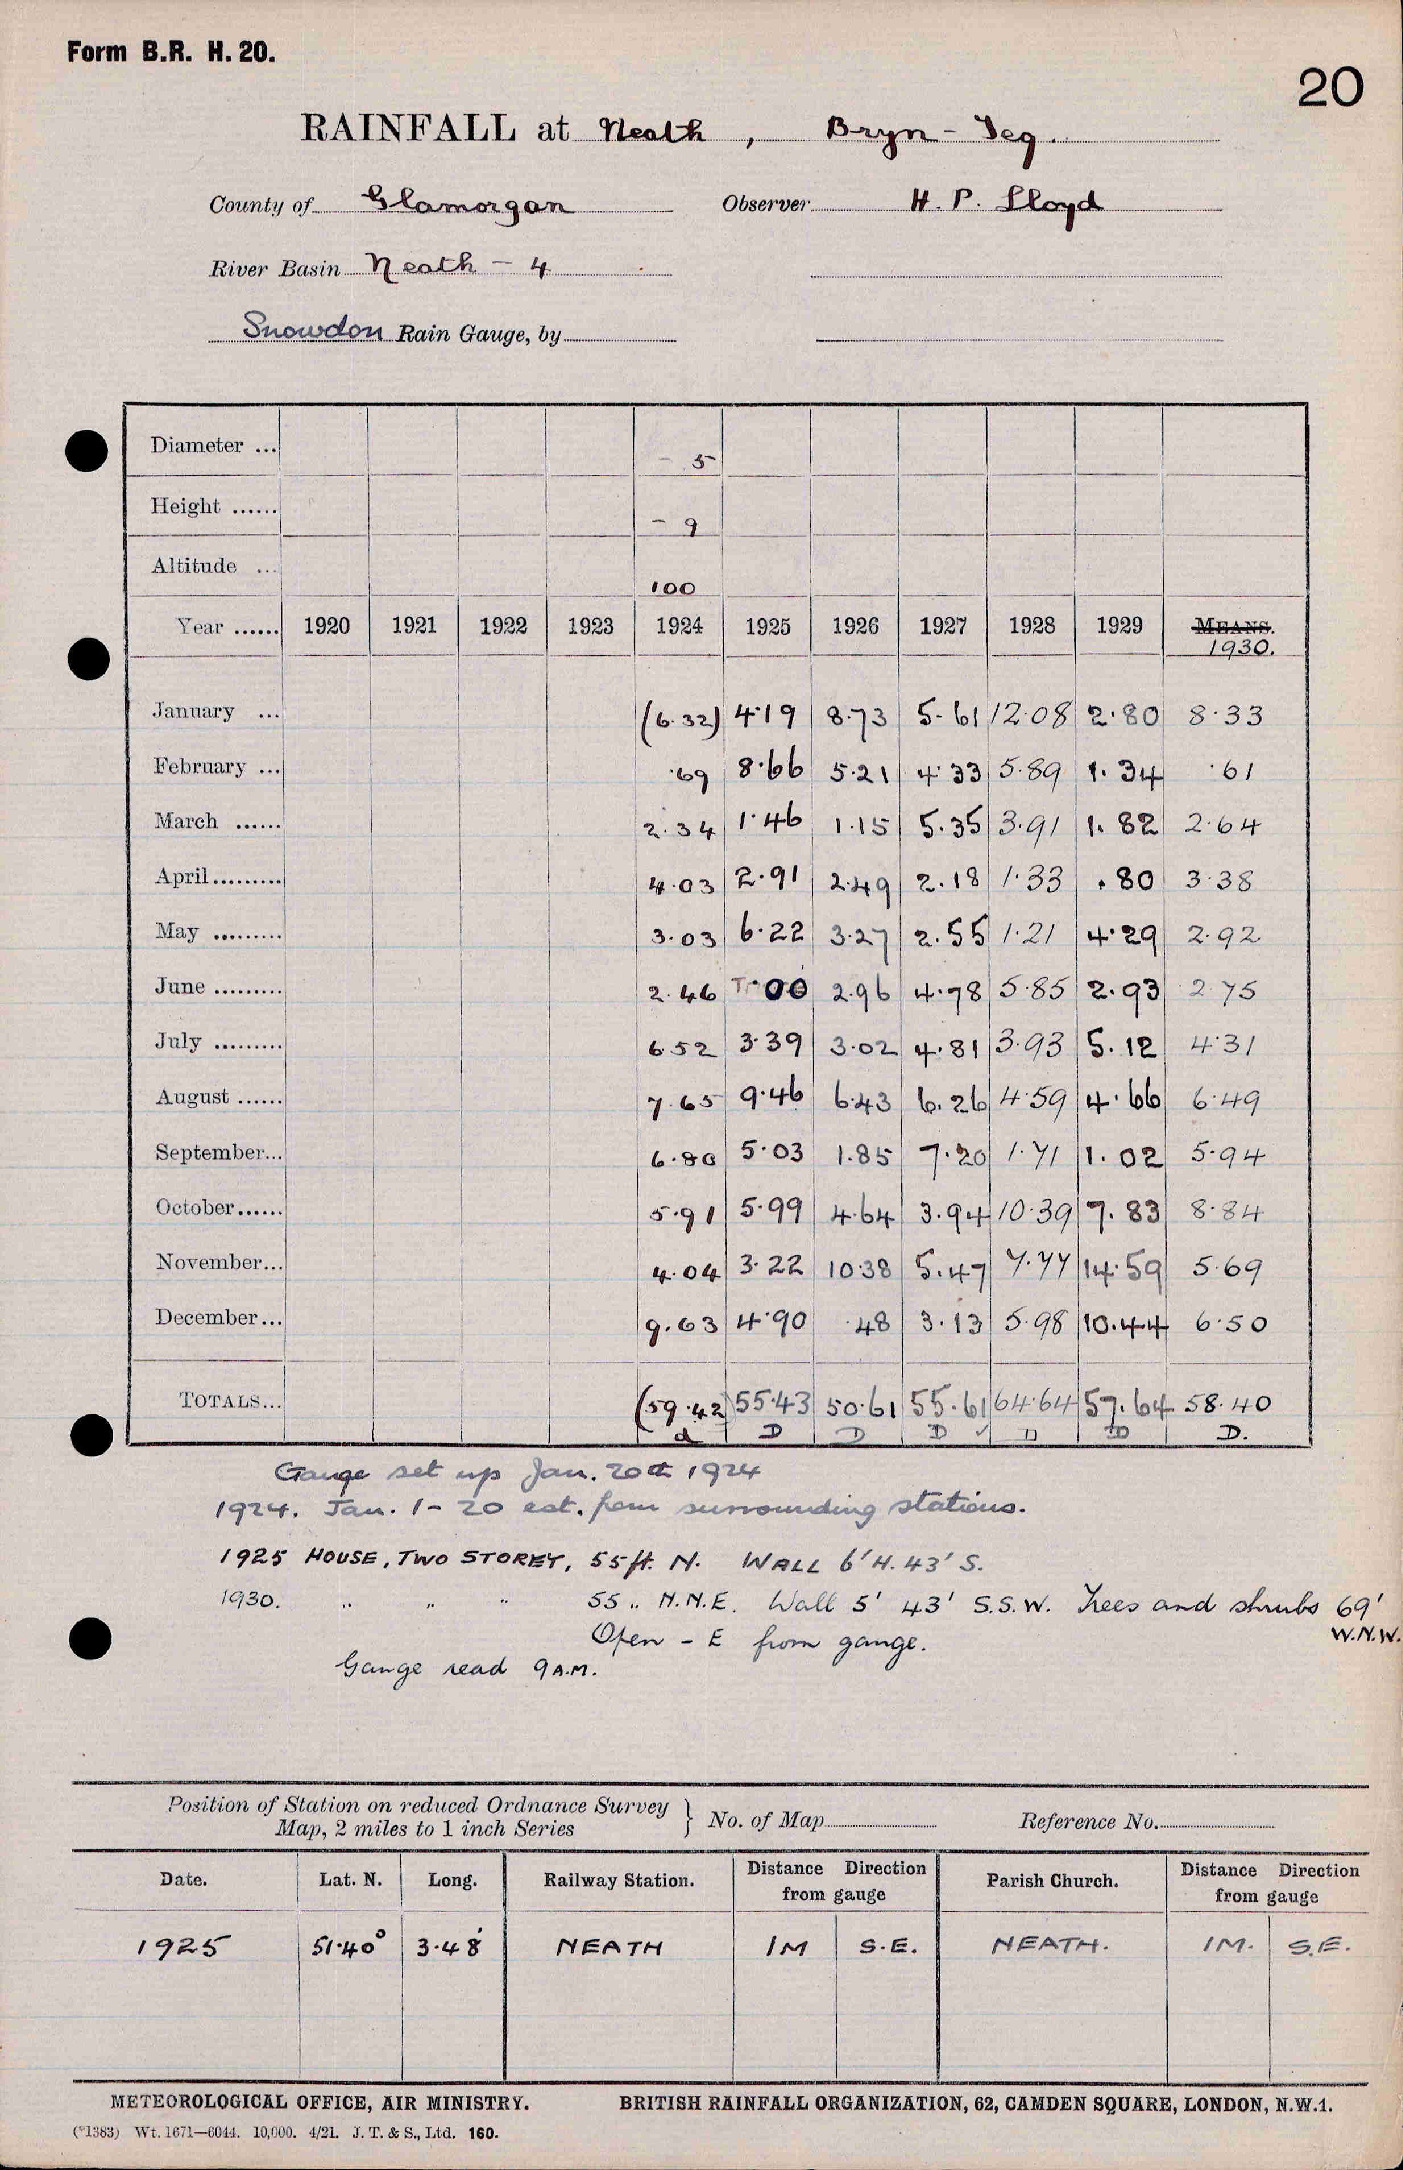 Form B.R. H. 20.
20
RAINFALL at Neath, Bryn-Teg.
County of Glamorgan Observer H. P. Lloyd
River Basin Neath - 4
Snowdon Rain Gauge, by
Diameter ... - 5
Height ...... - 9
Altitude ... 100
Year ...... 1920 1921 1922 1923 1924 1925 1926 1927 1928 1929 MEANS.
1930.
January ... (6.32) 4.19 8.73 5.61 12.08 2.80 8.33
February ... .69 8.66 5.21 4.33 5.89 1.34 .61
March ...... 2.34 1.46 1.15 5.35 3.91 1.82 2.64
April......... 4.03 2.91 2.49 2.18 1.33 .80 3.38
May ......... 3.03 6.22 3.27 2.55 1.21 4.29 2.92
June ......... 2.46 .00 2.96 4.78 5.85 2.93 2.75
July ......... 6.52 3.39 3.02 4.81 3.93 5.12 4.31
August ...... 7.65 9.46 6.43 6.26 4.59 4.66 6.49
September... 6.80 5.03 1.85 7.20 1.71 1.02 5.94
October...... 5.91 5.99 4.64 3.94 10.39 7.83 8.84
November... 4.04 3.22 10.38 5.47 7.77 14.59 5.69
December... 9.63 4.90 .48 3.13 5.98 10.44 6.50
TOTALS... (59.42) 55.43 50.61 55.61 64.64 57.64 58.40
d D D D ✓ D D D.
Gauge set up Jan. 20th 1924
1924. Jan. 1 - 20 est. from surrounding stations.
1925 HOUSE, TWO STOREY, 55 ft. N. WALL 6' H. 43' S.
1930. " " " 55 " N.N.E. Wall 5' 43' S.S.W. Trees and shrubs 69'
W.N.W.
Open - E from gauge.
Gauge read 9 A.M.
Position of Station on reduced Ordnance Survey
Map, 2 miles to 1 inch Series } No. of Map Reference No.
Date. Lat. N. Long. Railway Station. Distance Direction from gauge Parish Church. Distance Direction from gauge
1925 51.40° 3.48' NEATH 1M S.E. NEATH. 1M. S.E.
METEOROLOGICAL OFFICE, AIR MINISTRY. BRITISH RAINFALL ORGANIZATION, 62, CAMDEN SQUARE, LONDON, N.W.1.
(*1383) Wt. 1671—6044. 10,000. 4/21. J. T. & S., Ltd. 160.